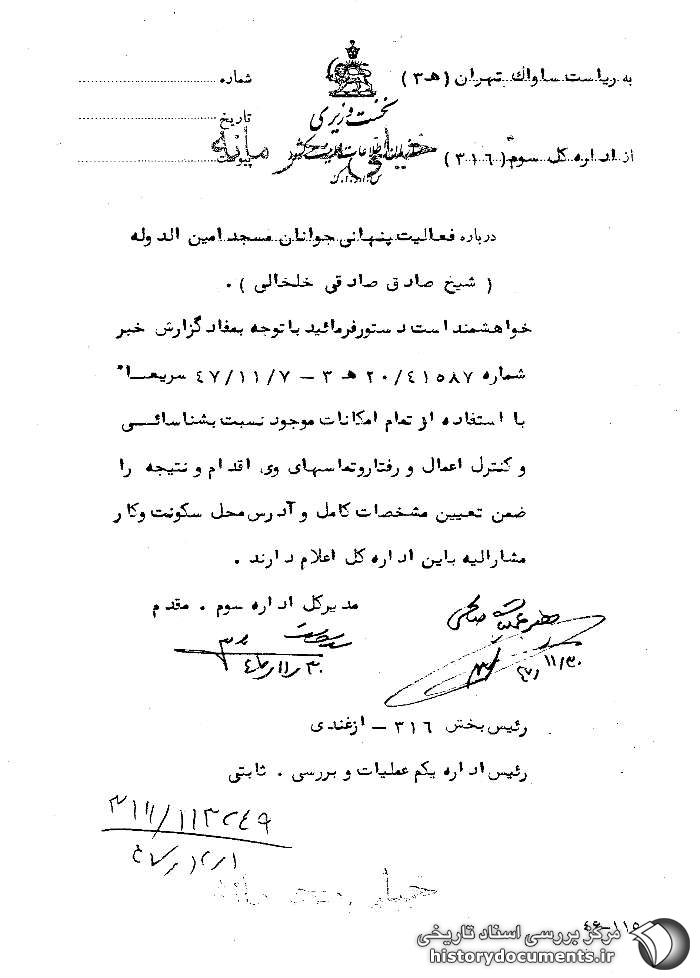 به ریاست ساواک تهران (هـ۳)
شماره
نخست وزیری
تاریخ
از اداره کل سوم (۳۱٦)
خیلی محرمانه
پیوست
درباره فعالیت پنهانی جوانان مسجد امین الدوله
( شیخ صادق صادقی خلخالی ) .
خواهشمند است دستور فرمائید با توجه بمفاد گزارش خبر
شماره ۲۰/٤۱٥۸۷ هـ ۳ - ٤۷/۱۱/۷ سریعــا"
با استفاده از تمام امکانات موجود نسبت بشناسائــی
و کنترل اعمال و رفتار و تماسهای وی اقدام و نتیجه را
ضمن تعیین مشخصات کامل و آدرس محل سکونت و کار
مشارالیه باین اداره کل اعلام دارند .
مدیرکل اداره سوم . مقدم
رهبر عملیات صالحی
۴۷/۱۱/۳۰
رئیس بخش ۳۱٦ - ازغندی
رئیس اداره یکم عملیات و بررسی . ثابتی
خیلی محرمانه
٤٦-۱۱٥
مرکز بررسی اسناد تاریخی
historydocuments.ir